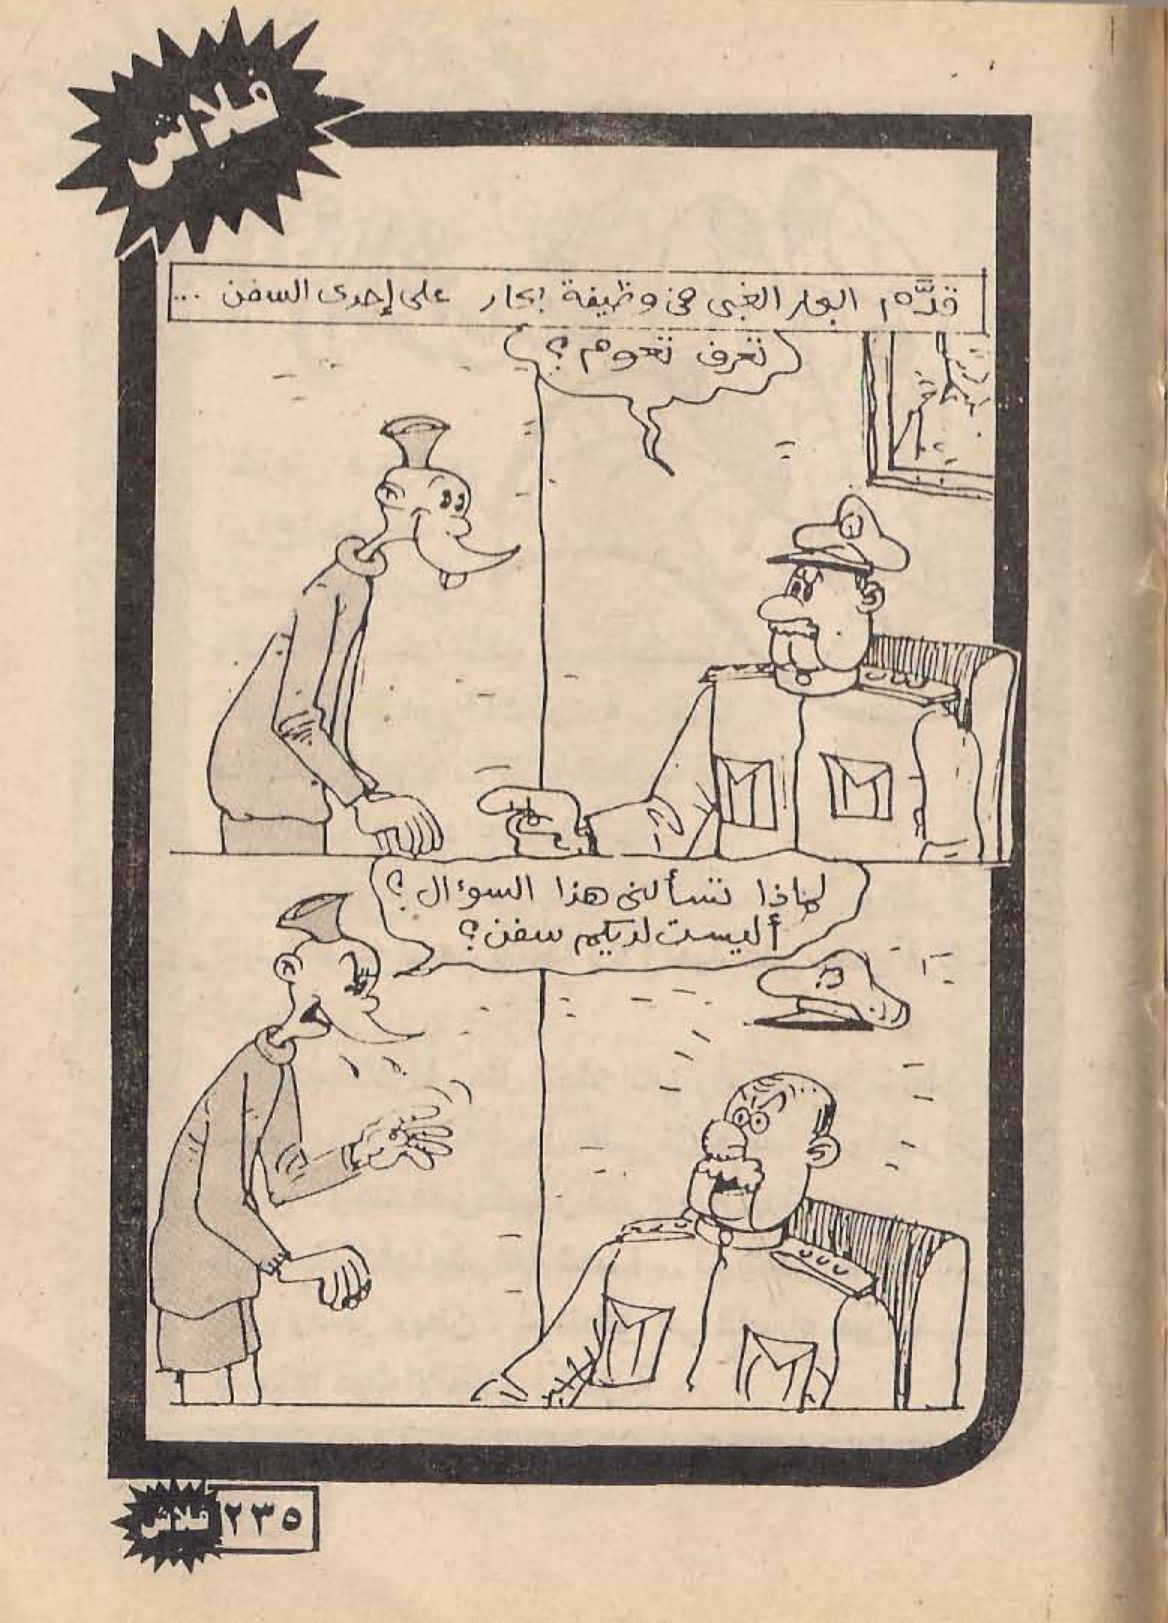 فلاش
قدَّم البحار الغبى فى وظيفة بحار على إحدى السفن ...
تعرف تعوم؟
لماذا تسألنى هذا السوءال؟
أليست لديكم سفن؟
فلاش ٢٣٥